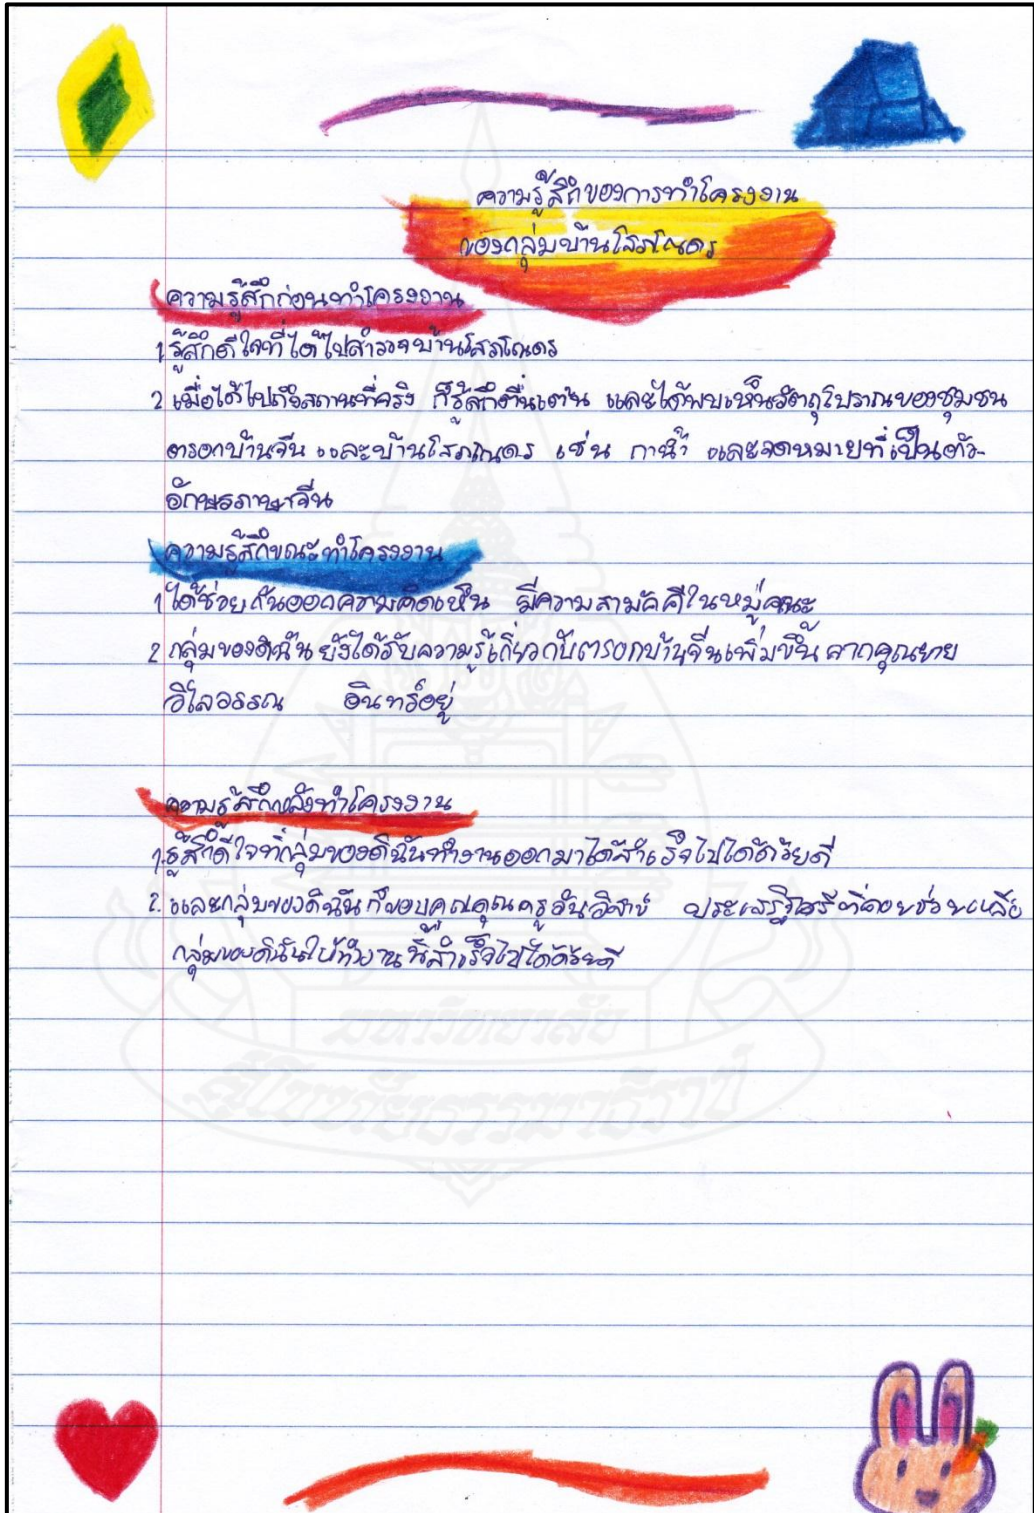 ความรู้สึกของการทำโครงงาน
ของกลุ่มบ้านโสภโณดร
ความรู้สึกก่อนทำโครงงาน
1 รู้สึกดีใจที่ได้ไปสำรวจบ้านโสภโณดร
2 เมื่อได้ไปถึงสถานที่จริง ก็รู้สึกตื่นเต้น และได้พบเห็นวัตถุโบราณของชุมชน
ตรอกบ้านจีน และบ้านโสภโณดร เช่น กาน้ำ และจดหมายที่เป็นตัว-
อักษรภาษาจีน
ความรู้สึกขณะทำโครงงาน
1 ได้ช่วยกันออกความคิดเห็น มีความสามัคคีในหมู่คณะ
2 กลุ่มของดิฉันยังได้รับความรู้เกี่ยวกับตรอกบ้านจีนเพิ่มขึ้น จากคุณยาย
วิไลวรรณ อินทร์อยู่
ความรู้สึกหลังทำโครงงาน
1. รู้สึกดีใจที่กลุ่มของดิฉันทำงานออกมาได้สำเร็จไปได้ด้วยดี
2. และกลุ่มของดิฉันก็ขอบคุณคุณครู ที่คอยช่วยเหลือ
กลุ่มของดิฉันให้ทำงานนี้สำเร็จไปได้ด้วยดี
มหาวิทยาลัย
สุโขทัยธรรมาธิราช